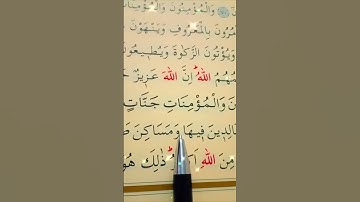 وَالْمُؤْمِنُونَ وَالْمُؤْمِنَا
مُرُونَ بِالْمَعْرُوفِ وَيَنْهَوْنَ
وَيُؤْتُونَ الزَّكٰوةَ وَيُطٖيعُونَ
مُهُمُ اللّٰهُؕ اِنَّ اللّٰهَ عَزٖيزٌ
نَ وَالْمُؤْمِنَاتِ جَنَّاتٍ
الِدٖينَ فٖيهَا وَمَسَاكِنَ
مِنَ اللّٰهِ اَكْبَرُؕ ذٰلِكَ هُوَ